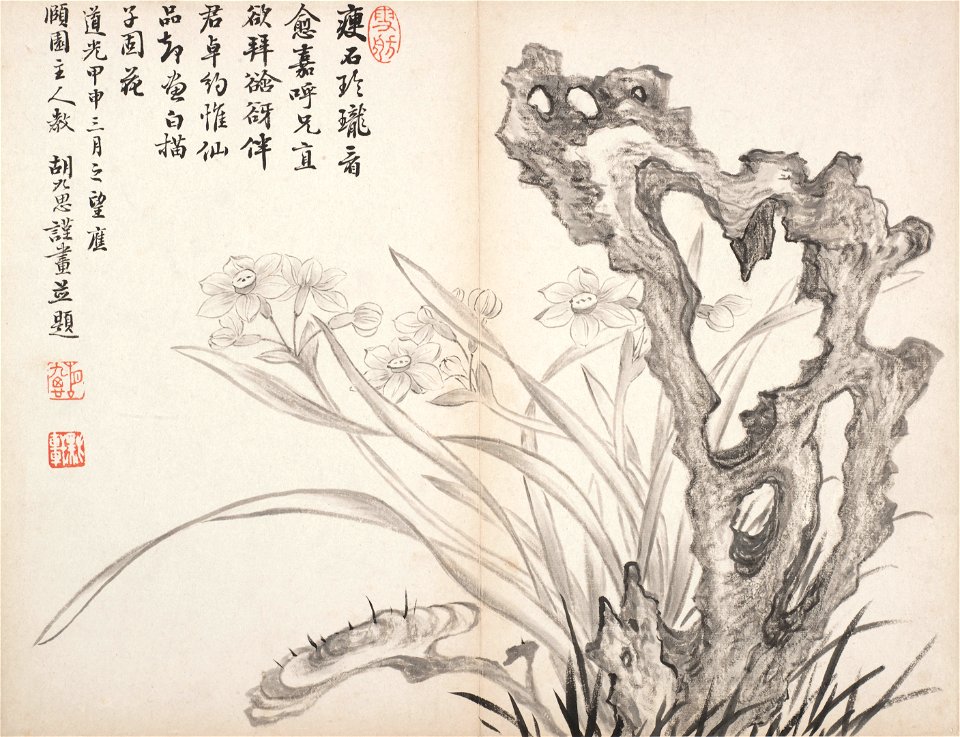 瘦石玲瓏看
愈嘉呼兄直
欲拜谽谺伴
君卓約惟仙
品却白描
子固花
道光甲申三月之望應
頤園主人教 胡九思謹畫並題
雪舫